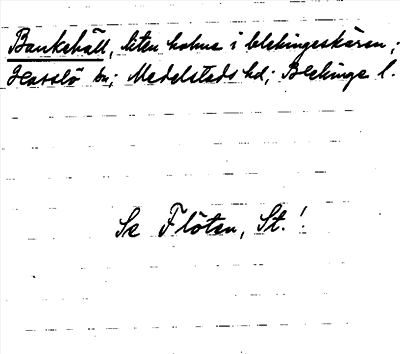 Bankehäll, liten holme i blekingeskären;
Hasslö sn; Medelstads hd; Blekinge l.
Se Flötan, St.!